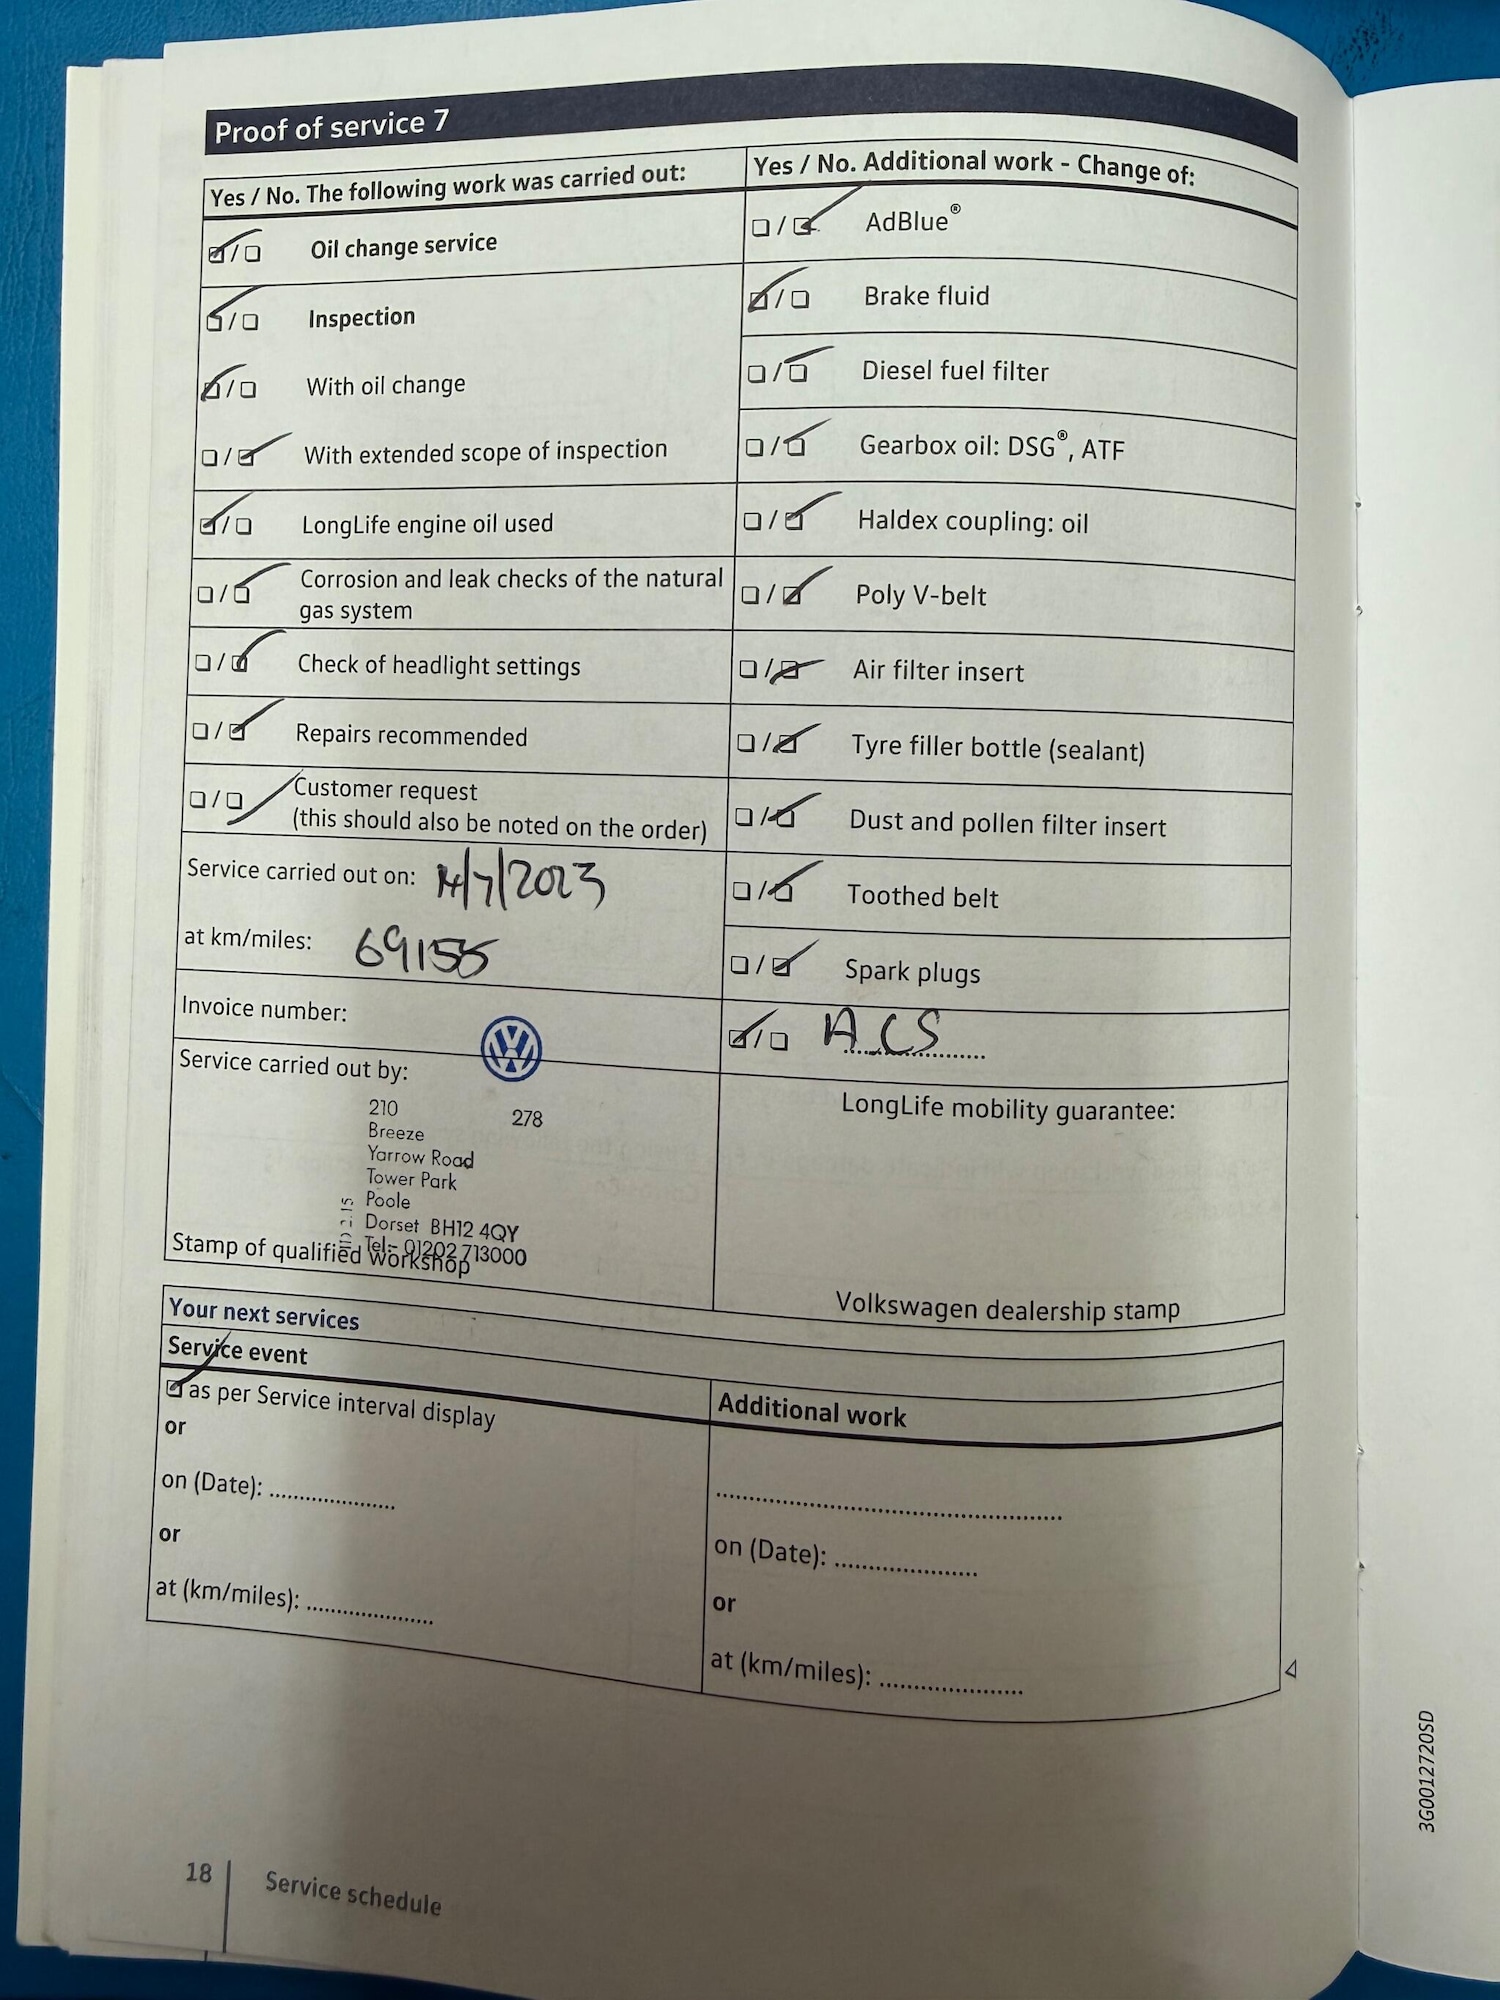 Proof of service 7
Yes / No. The following work was carried out:
Oil change service
Inspection
With oil change
With extended scope of inspection
LongLife engine oil used
Corrosion and leak checks of the natural
gas system
Check of headlight settings
Repairs recommended
Customer request
(this should also be noted on the order)
Service carried out on: 14/7/2023
at km/miles: 69155
Invoice number:
Service carried out by:
210
278
Breeze
Yarrow Road
Tower Park
Poole
Dorset BH12 4QY
Tel:- 01202 713000
Stamp of qualified workshop
Yes / No. Additional work - Change of:
AdBlue®
Brake fluid
Diesel fuel filter
Gearbox oil: DSG®, ATF
Haldex coupling: oil
Poly V-belt
Air filter insert
Tyre filler bottle (sealant)
Dust and pollen filter insert
Toothed belt
Spark plugs
ACS
LongLife mobility guarantee:
Volkswagen dealership stamp
Your next services
Service event
as per Service interval display
or
on (Date): .....................
or
at (km/miles): .....................
Additional work
on (Date): .....................
or
at (km/miles): .....................
18
Service schedule
3G0012720SD